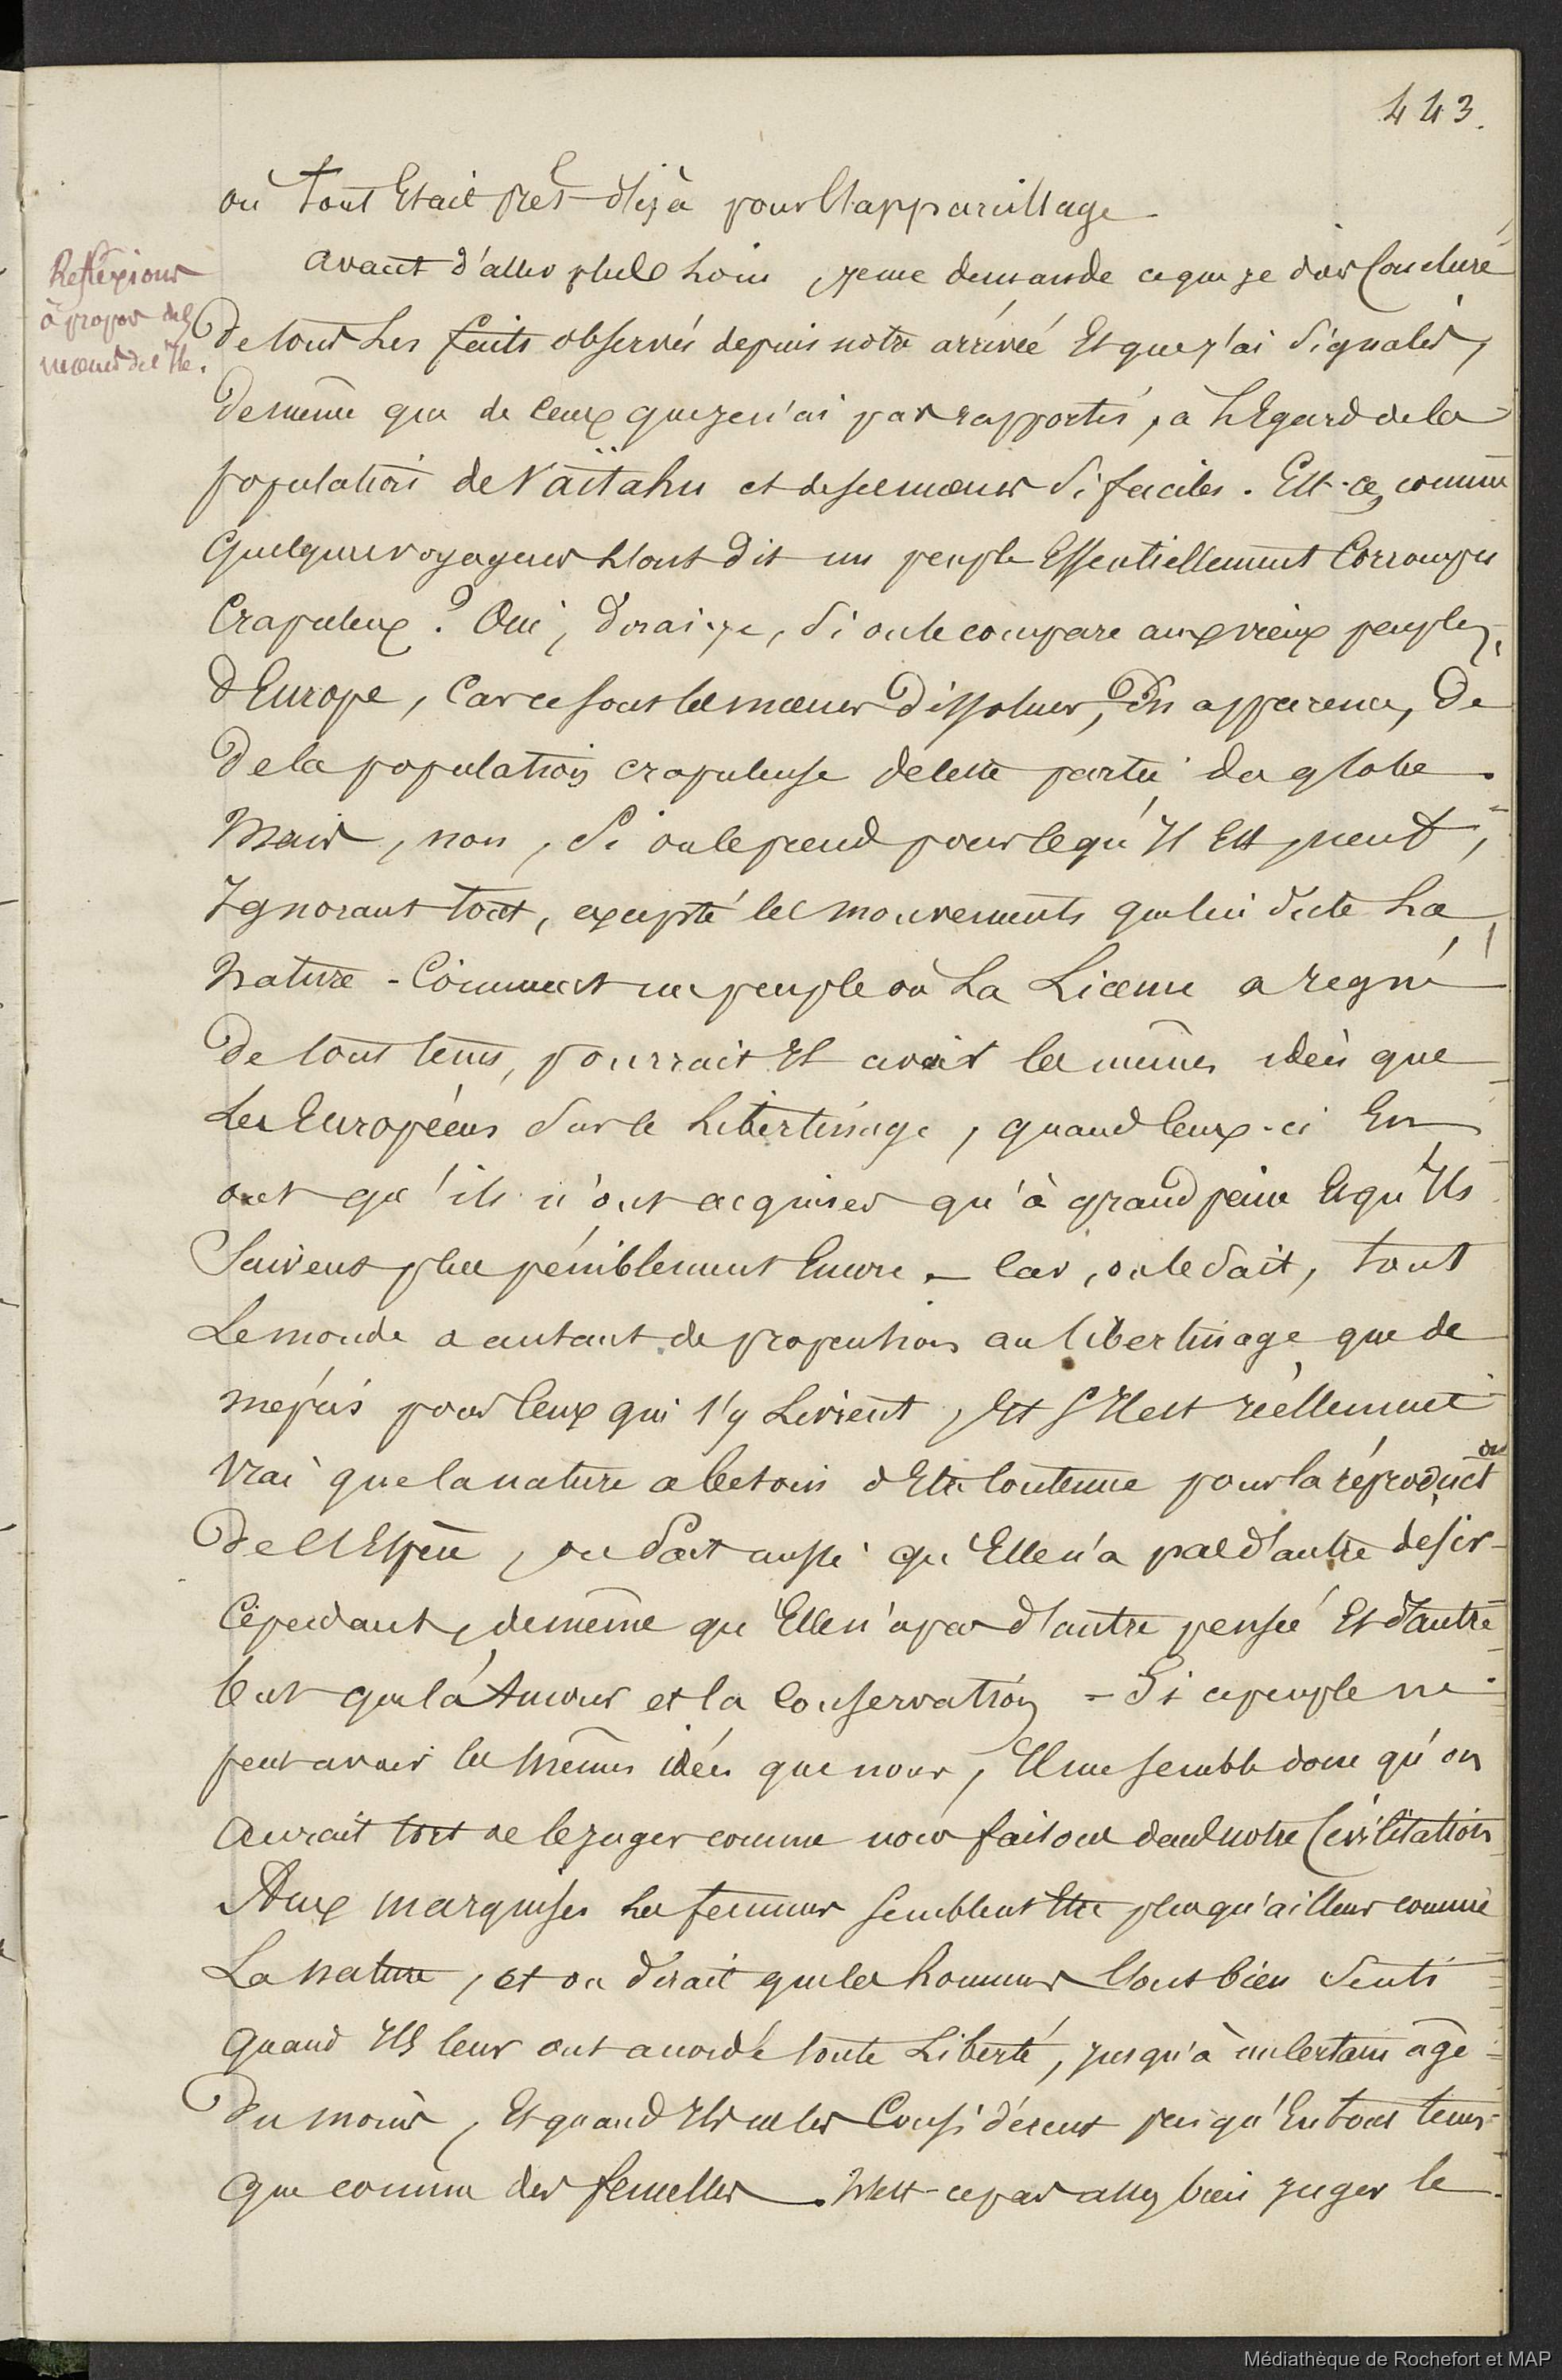 443.
où tout Etait prêt déjà pour l'appareillage
Réflexions
à propos des
mœurs de l'Ile.
avant d'aller plus Loin, je me demande ce que je dois Conclure
De tous Les faits observés depuis notre arrivée Et que j'ai signalés,
De même que de Ceux que je n'ai pas rapportés, à L'Egard de la
population de Vaïtahu et de ses mœurs si faciles. Est-ce, comme
quelques voyageurs l'ont dit un peuple Essentiellement Corrompu
Crapuleux? Oui, dirai-je, Si on le compare aux vieux peuples,
D'Europe, Car ce sont les mœurs Dissolues, En apparence, De
De la population crapuleuse de cette partie du globe.
Mais, non, Si on le prend pour ce qu'Il Est, neuf,
Ignorant tout, excepté les mouvements que lui dicte La
Nature - Comment un peuple où La Licence a regné
De tout tems, pourrait Il avoir les mêmes idées que
Les Européens Sur le Libertinage, quand Ceux-ci En
ont qu'ils n'ont acquises qu'à grand peine Et qu'Ils
Suivent plus péniblement Encore. - Car, on le Sait, tout
Le monde a autant de propention au libertinage que de
mépris pour Ceux qui s'y Livrent, Et s'Il est réellement
vrai que la nature a besoin d'Etre Contenue pour la réproduct on
De l'Espèce, on Sait aussi qu'Elle n'a pas d'autre désir
Cependant, de même qu'Elle n'a pas d'autre pensée Et d'autre
but que l'Amour et la Conservation - Si ce peuple ne
peut avoir les mêmes idées que nous, Il me semble donc qu'on
Aurait tort de le juger comme nous faisons dans notre Civilitation
Aux marquises Les femmes Semblent Etre plus qu'ailleurs comme
La nature, et on dirait que les hommes l'ont bien Senti
quand Ils leur ont accordé toute Liberté, jusqu'à un Certain âge
Du moins, Et quand Ils ne les Considèrent presqu'En tous tems
que comme des femelles. N'est-ce pas assez bien juger le
Médiathèque de Rochefort et MAP